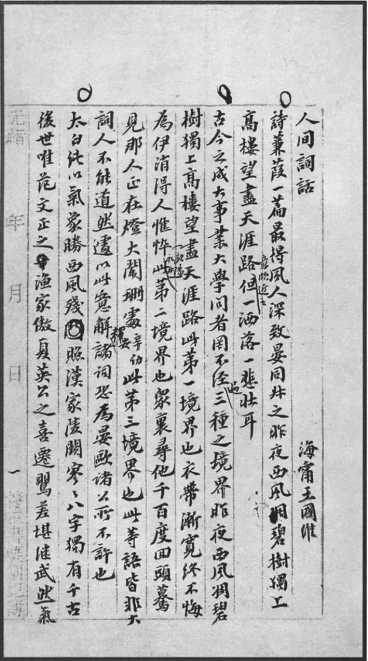 人间詞話
海甯王國維
詩蒹葭一篇最得風人深致晏同叔之昨夜西風凋碧樹獨上
高樓望盡天涯路意頗近之但一洒落一悲壯耳
古今之成大事業大學問者罔不經過三種之境界昨夜西風凋碧
樹獨上高樓望盡天涯路此第一境界也衣帶漸寬終不悔
為伊消得人憔悴歐陽永叔此第二境界也眾裏尋他千百度回頭驀
見那人正在燈火闌珊處辛幼安此第三境界也此等語皆非大
詞人不能道然遽以此意解釋諸詞恐為晏歐諸公所不許也
太白純以氣象勝西風殘照漢家陵闕寥〻八字獨有千古
後世唯范文正之漁家傲夏英公之喜遷鶯差堪繼武然氣
光緒 年 月 日 一